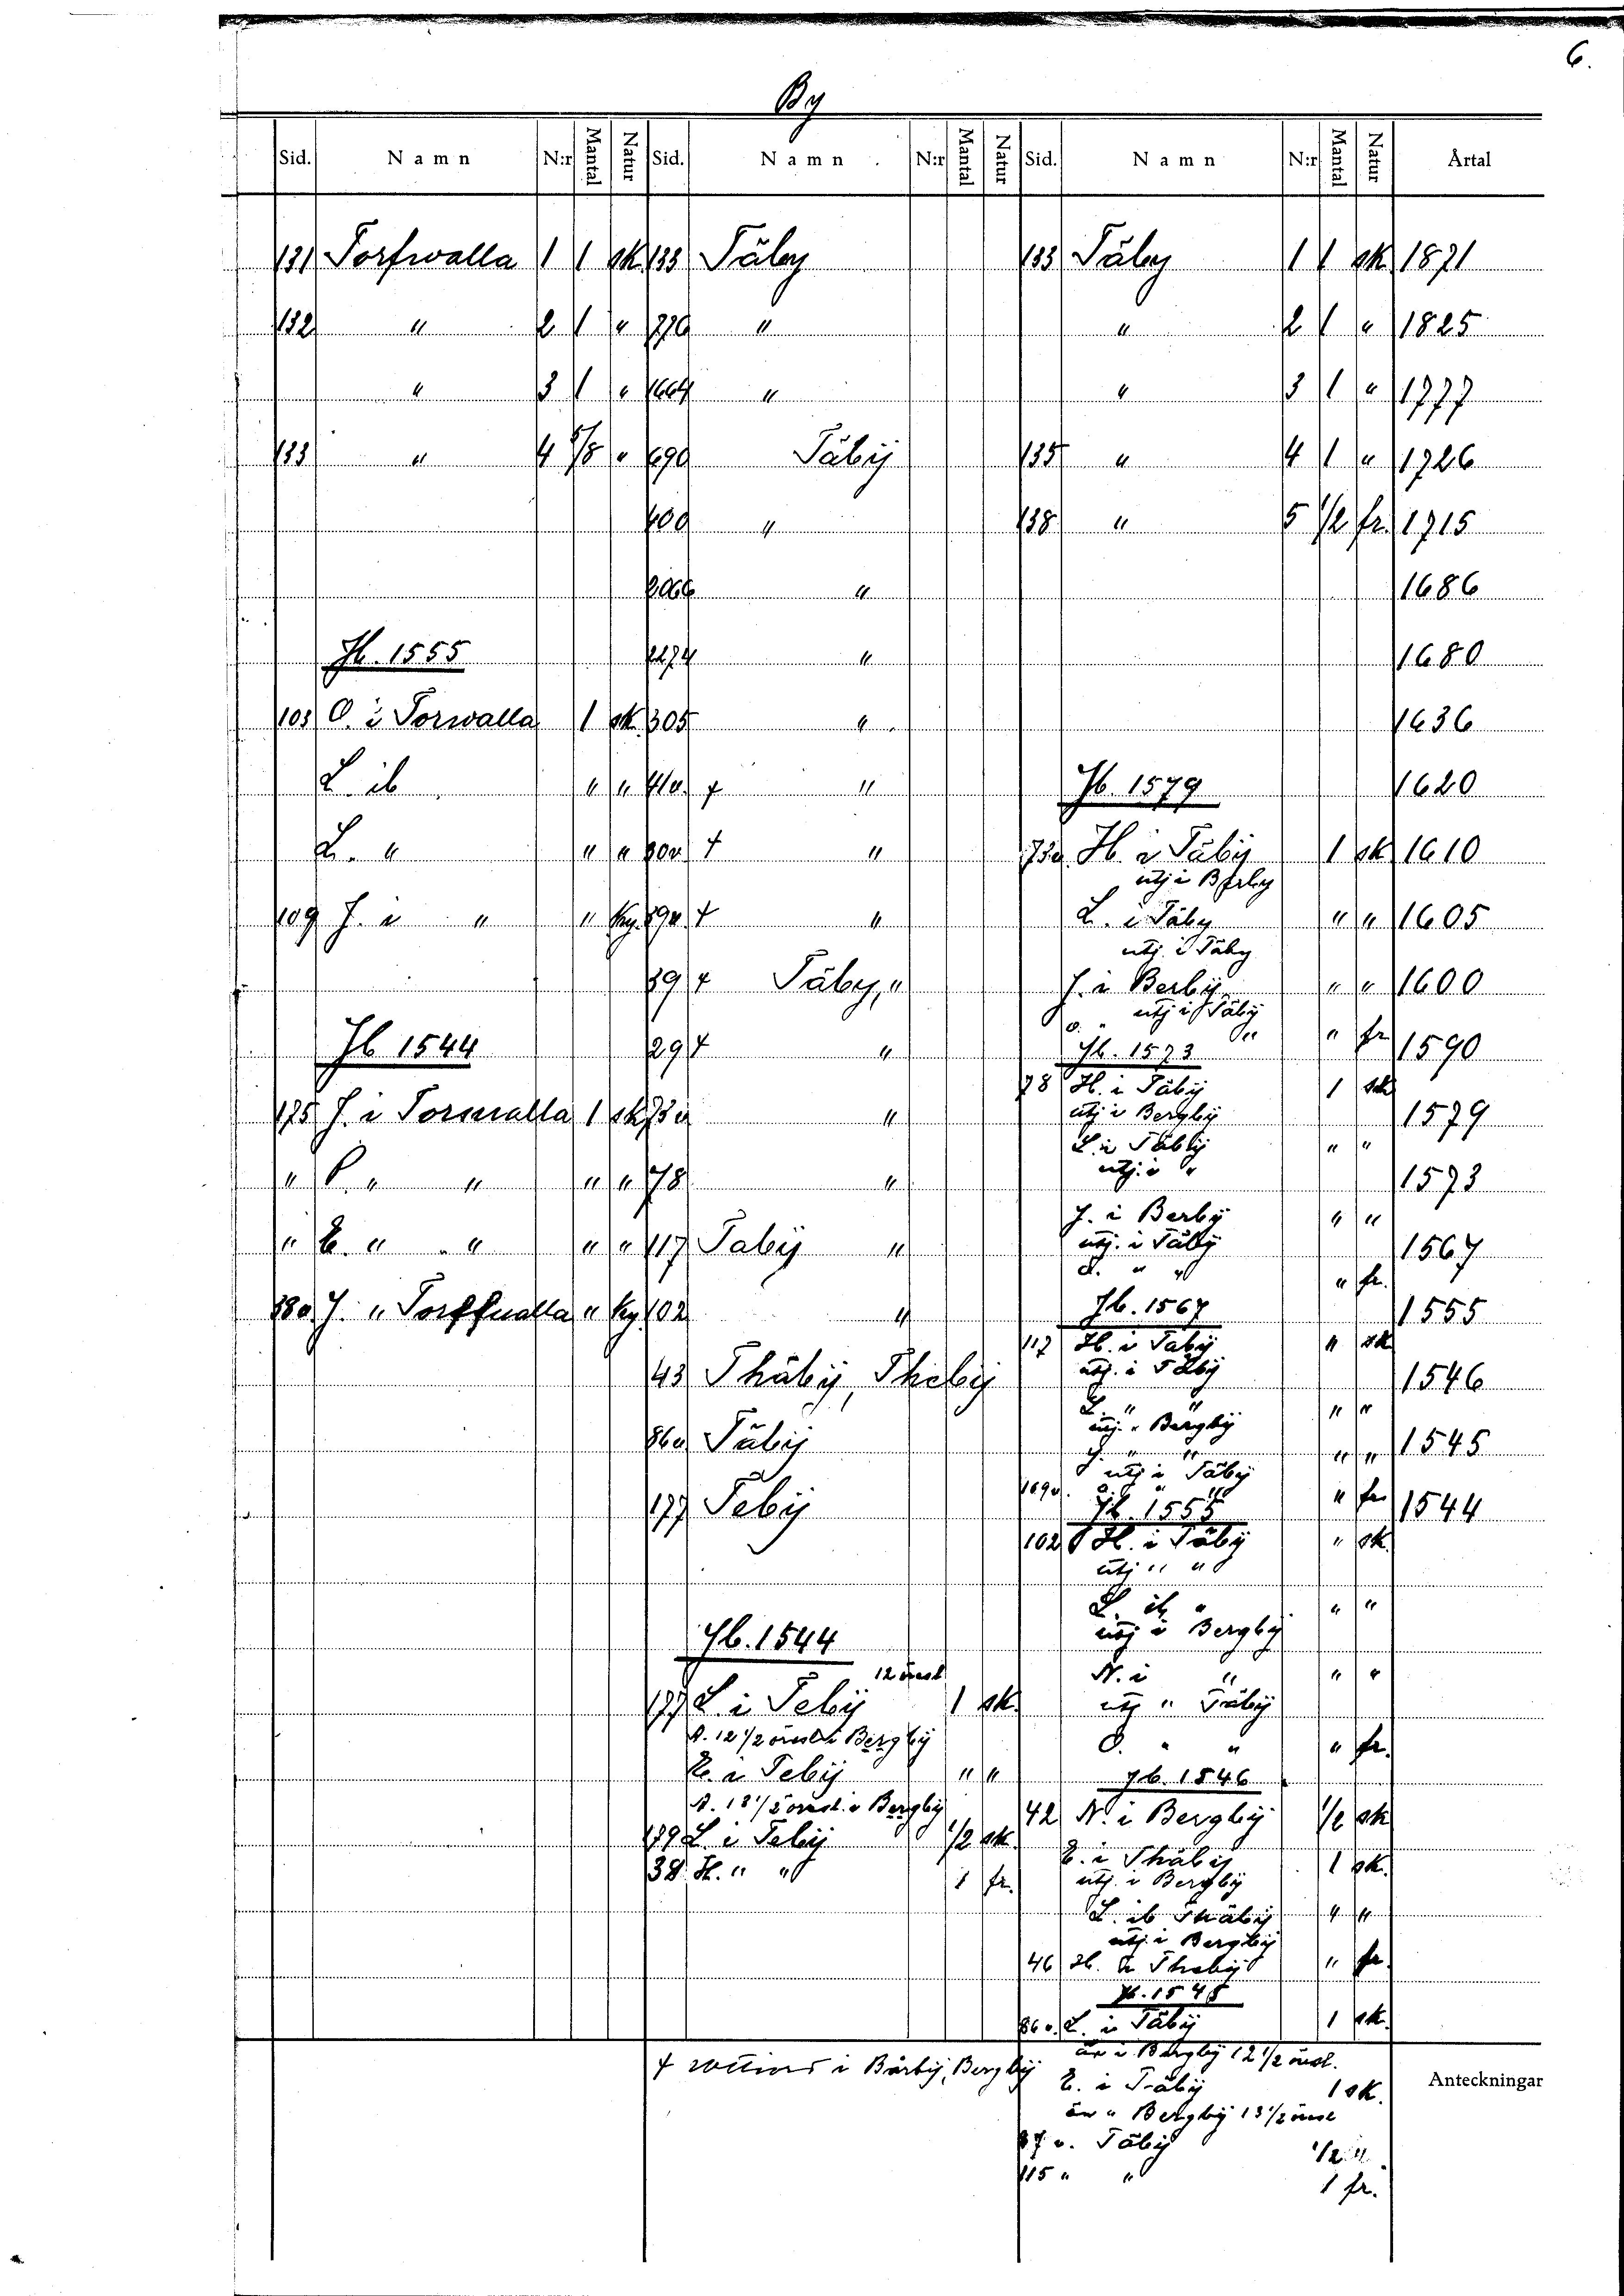 6.
By
Sid. Namn N:r Mantal Natur Sid. Namn N:r Mantal Natur Sid. Namn N:r Mantal Natur Årtal
131 Torfwalla 1 1 sk 133 Täby 133 Täby 1 1 sk 1871
132 " 2 1 " 770 " " 2 1 " 1825
" 3 1 " 1664 " " 3 1 " 1777
133 " 4 5/8 " 690 Täbij 135 " 4 1 " 1726
400 " 138 " 5 1/2 fr. 1715
2066 " 1686
Jb. 1555 2274 " 1680
103 O. i Torwalla 1 sk. 305 " 1636
L. ib " " 41v. + " Jb. 1579 1620
L. " " " 30v. + " 73v H. i Täbij 1 sk 1610
utj i Berby
109 J. i " " Ky. 39v. + " L. i Täby " " 1605
utj. i Täby
39 + Täby, " J. i Berbij " " 1600
utj i Täbij
O. " " " fr
Jb 1544 29 + " Jb. 1573 1590
78 H. i Täbij 1 sk
175 J. i Torswalla 1 sk 73v " utj i Bergbij 1579
L. i Täbij " "
" P. " " " " 78 " utj. i " 1573
J. i Berbij " "
" E. " " " " 117 Tabij " utj. i Täbij 1567
O. " " " fr.
38v. J. " Torffualla " Ky. 102 " Jb. 1567 1555
117 H. i Täbij " sk
43 Thäbij, Thebij utj. i Täbij 1546
L. " " " "
utj. " Bergbij
86v Täbij J. " " " " 1545
utj i Täbij
169v. O. " " " fr
177 Tebij Jb. 1555 1544
102 H. i Täbij " sk.
utj " "
L. ib " " "
Jb. 1544 utj i Bergbij
12 öresl N. i " " "
177 L. i Tebij 1 sk. utj " Täbij
A. 12 1/2 öresl i Bergbij O. " " " fr.
E. i Tebij " " Jb. 1546
A. 13 1/2 öresl. i Bergbij 42 N. i Bergbij 1/2 sk
179 L. i Tebij 1/2 sk. E. i Thäbij 1 sk.
38 H. " " 1 fr. utj. i Bergbij
L. ib Thäbij " "
utj. i Bergbij
46 H. i Thebij " fr.
Jb. 1545
86v. L. i Täbij 1 sk.
än i Bergbij 12 1/2 öresl.
+ i Bärbij, Bergbij
E. i Täbij 1 sk.
än " Bergbij 13 1/2 öresl
87 v. Täbij 1/2 "
115 " " 1 fr.
Anteckningar